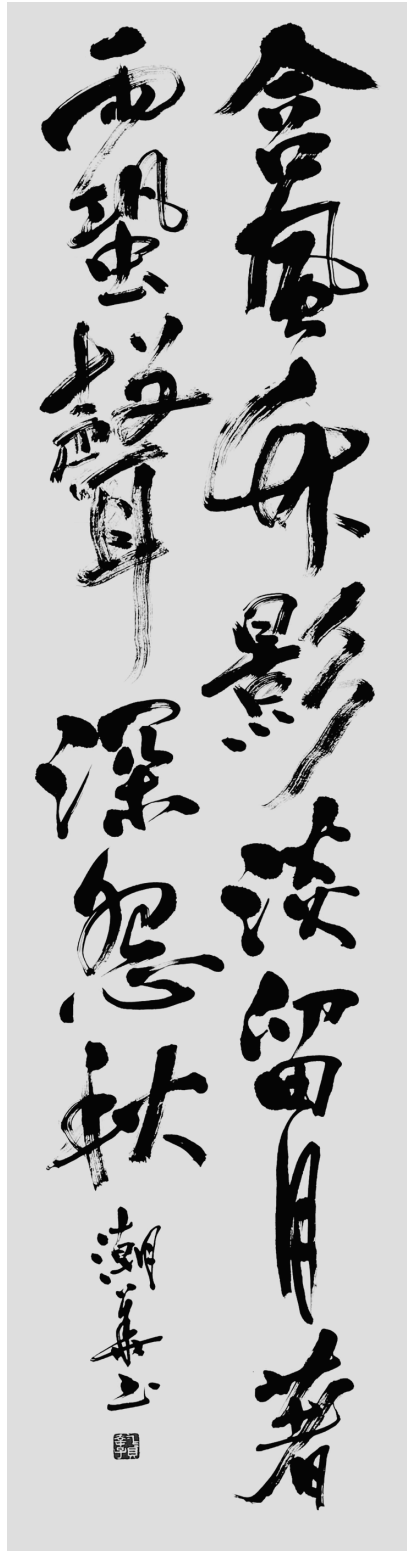 含風竹影淡留月著
雨蛩聲深怨秋
潮華书